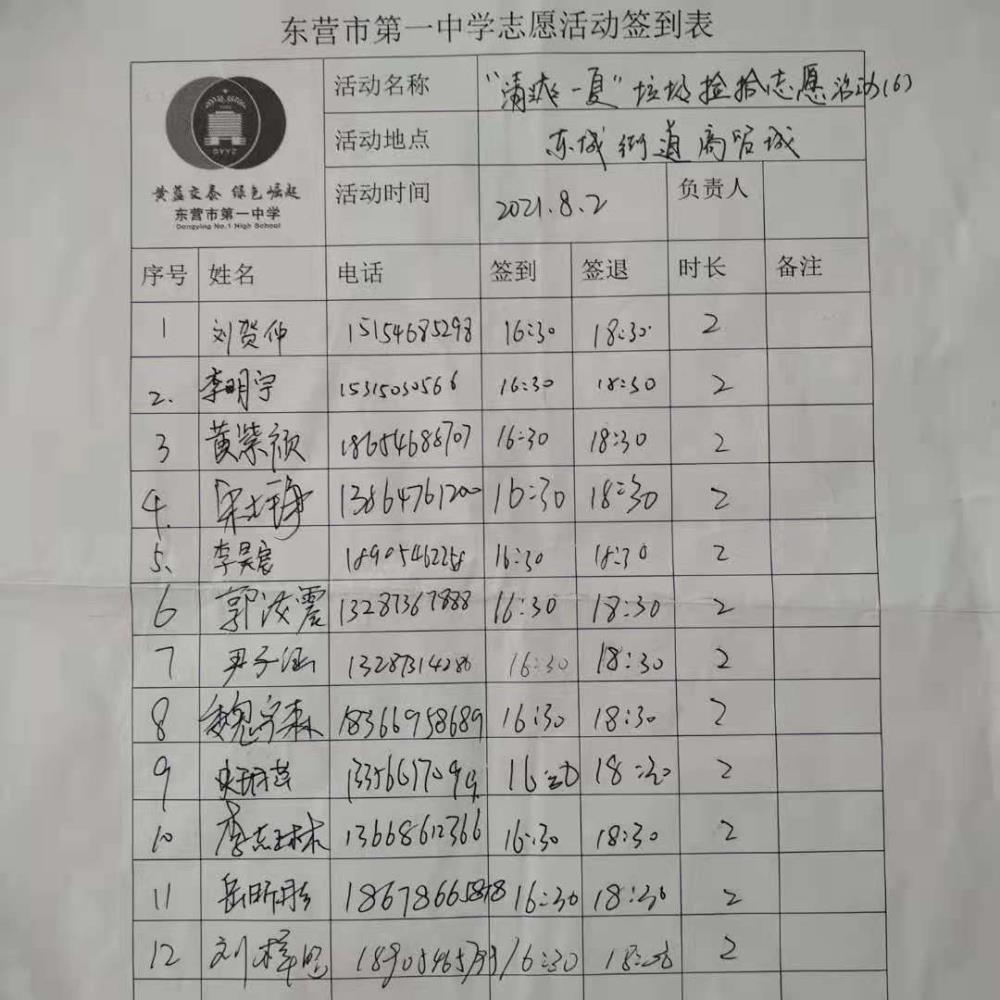 东营市第一中学志愿活动签到表
活动名称 "清爽一夏"垃圾捡拾志愿活动(6)
活动地点 东城街道商贸城
活动时间 2021.8.2 负责人
DYYZ
黄蓝交泰 绿色崛起
东营市第一中学
Dongying No.1 High School
序号 姓名 电话 签到 签退 时长 备注
1 刘贺仲 15154685298 16:30 18:30 2
2. 李明宇 15315030566 16:30 18:30 2
3 黄紫颜 18654688707 16:30 18:30 2
4. 13864761200 16:30 18:30 2
5、 李昊宸 18905462258 16:30 18:30 2
6 郭浚震 13287367888 16:30 18:30 2
7 尹子涵 13287314286 16:30 18:30 2
8 魏宇森 18366958689 16:30 18:30 2
9 16:30 18:30 2
10 李志琳 13668612366 16:30 18:30 2
11 岳昕彤 16:30 18:30 2
12 刘梓 16:30 2